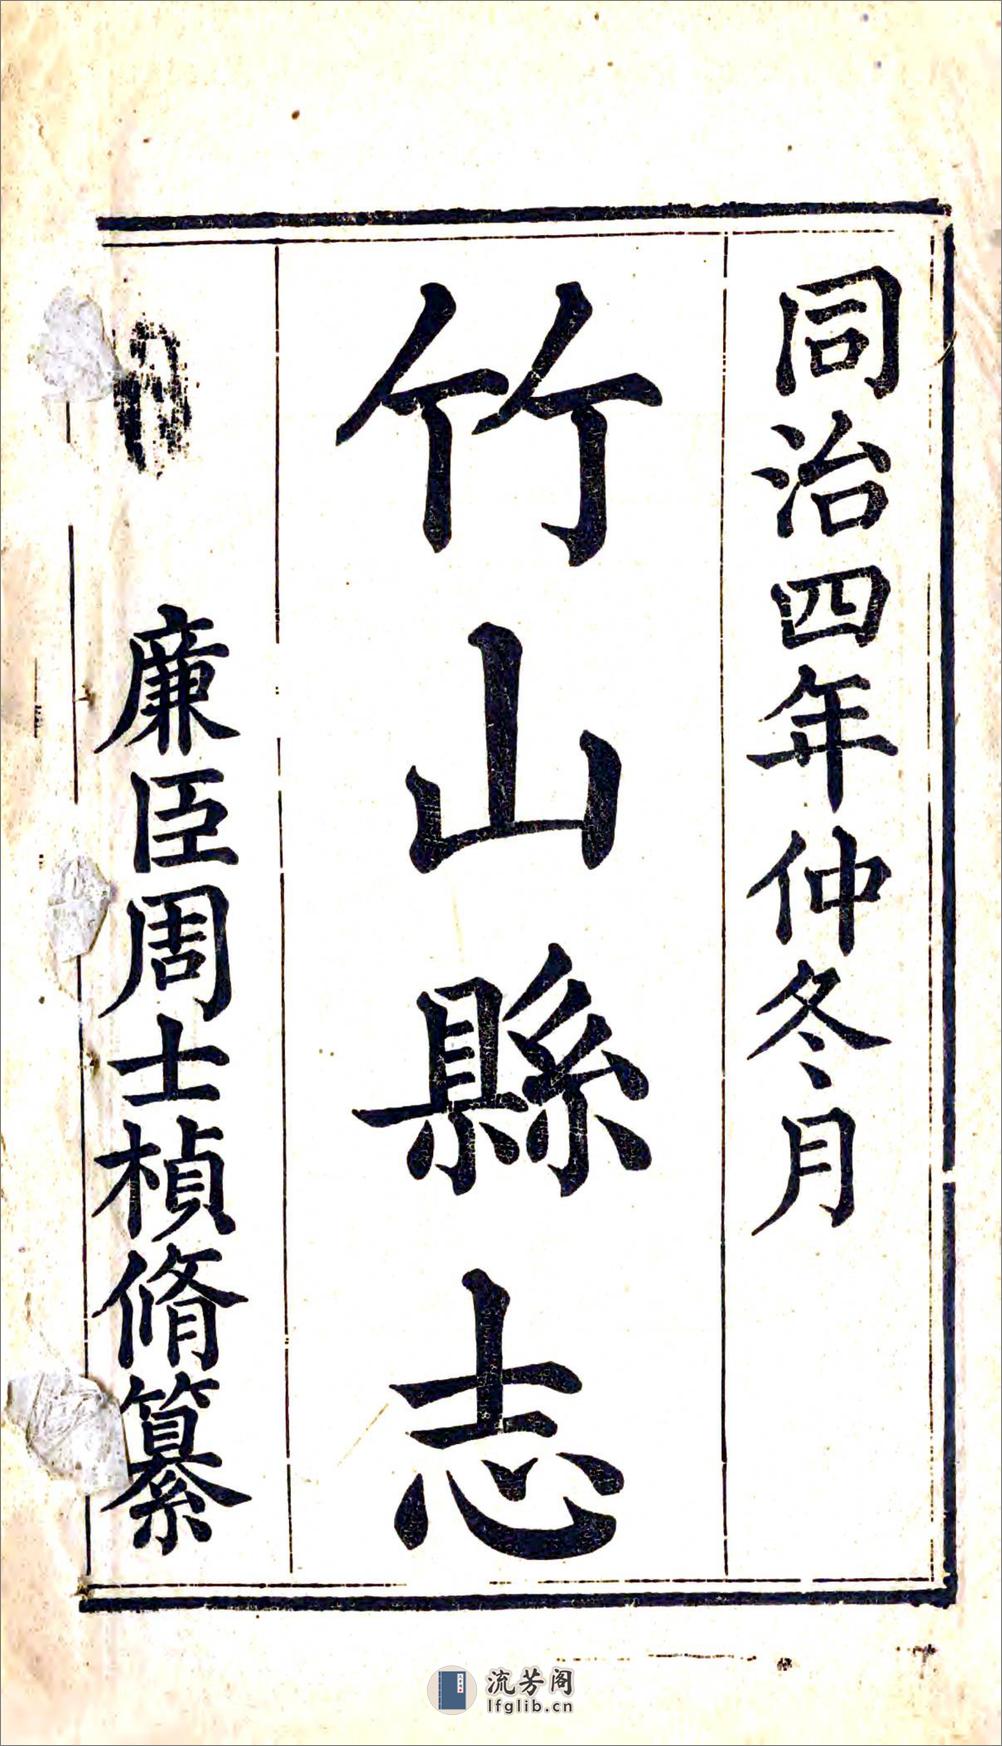 同治四年仲冬月
竹山縣志
廉臣周士楨脩纂
流芳阁
lfglib.cn